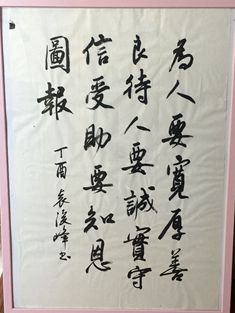 為人要寬厚善
良待人要誠實守
信受助要知恩
圖報
丁酉袁後峰书